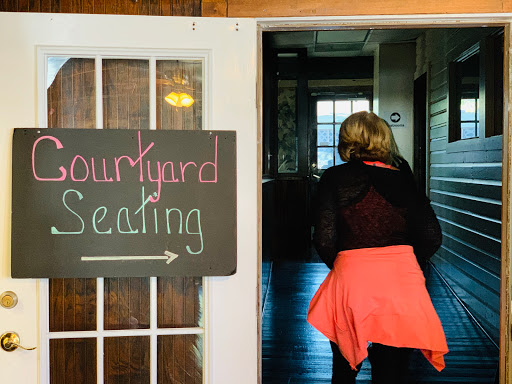 Courtyard
Seating